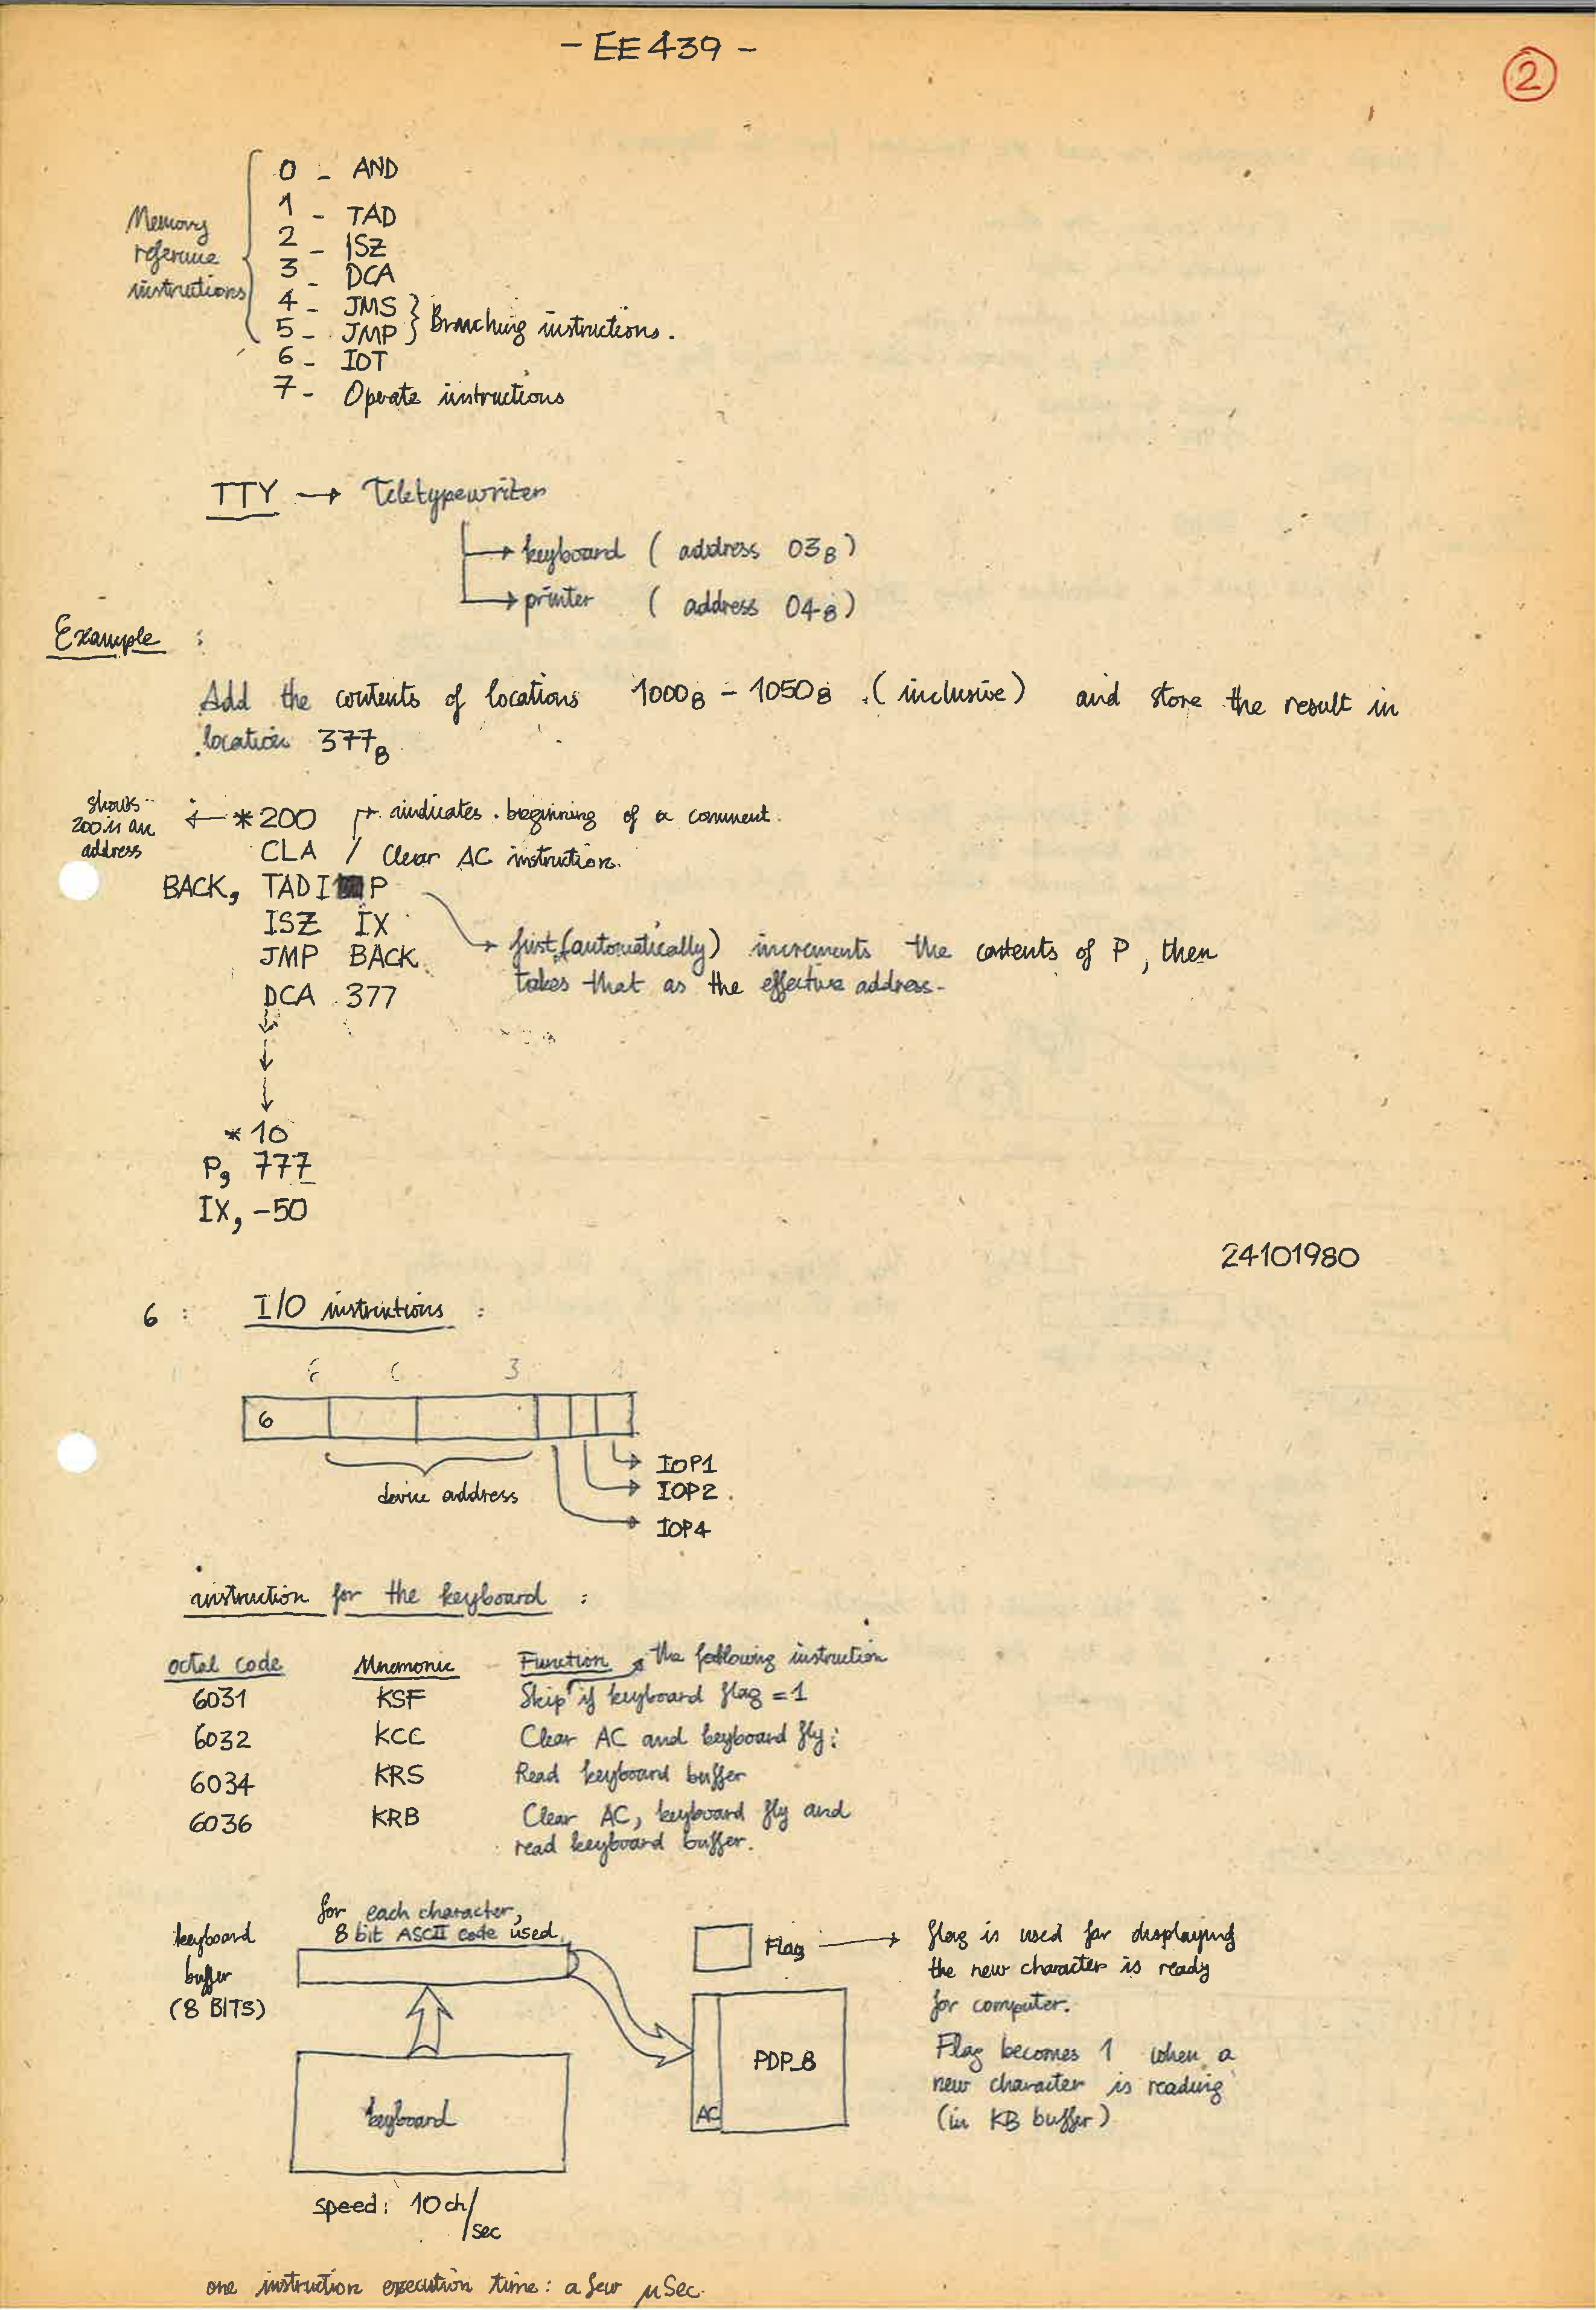 - EE 439 -
2
0 - AND
1 - TAD
2 - ISZ
3 - DCA
4 - JMS
5 - JMP
6 - IOT
7 - Operate instructions
Memory
reference
instructions
Branching instructions.
TTY → Teletypewriter
→ keyboard ( address 03₈ )
→ printer ( address 04₈ )
Example :
Add the contents of locations 1000₈ - 1050₈ (inclusive) and store the result in
location 377₈
shows
200 is an
address
← *200
indicates beginning of a comment.
CLA / Clear AC instruction.
BACK, TAD I P
ISZ IX
JMP BACK
DCA 377
→ first (automatically) increments the contents of P, then
takes that as the effective address.
*10
P, 777
IX, -50
24101980
6 : I/O instructions :
3
6
device address
IOP1
IOP2
IOP4
instruction for the keyboard :
octal code Mnemonic Function the following instruction
6031 KSF Skip if keyboard flag = 1
6032 KCC Clear AC and keyboard flg:
6034 KRS Read keyboard buffer
6036 KRB Clear AC, keyboard flg and
read keyboard buffer.
for each character,
8 bit ASCII code used
keyboard
buffer
(8 BITS)
Flag → flag is used for displaying
the new character is ready
for computer.
Flag becomes 1 when a
new character is reading
(in KB buffer)
PDP_8
AC
keyboard
speed: 10 ch/sec
one instruction execution time: a few µSec.